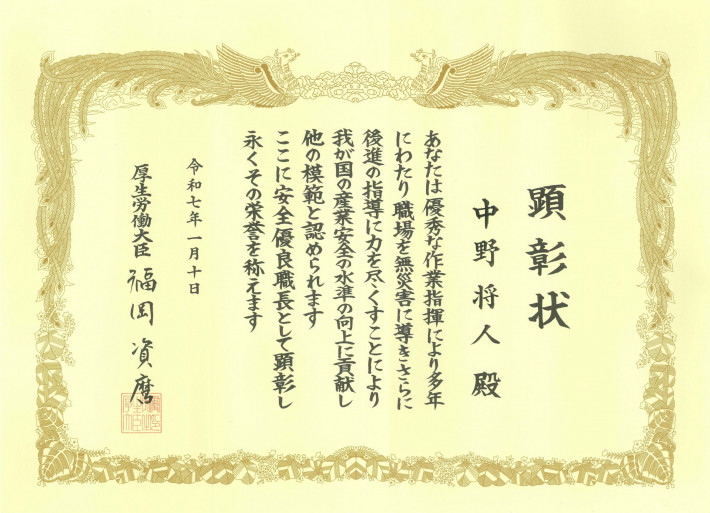 顕彰状
中野将人殿
あなたは優秀な作業指揮により多年
にわたり職場を無災害に導きさらに
後進の指導に力を尽くすことにより
我が国の産業安全の水準の向上に貢献し
他の模範と認められます
ここに安全優良職長として顕彰し
永くその栄誉を称えます
令和七年一月十日
厚生労働大臣 福岡資麿